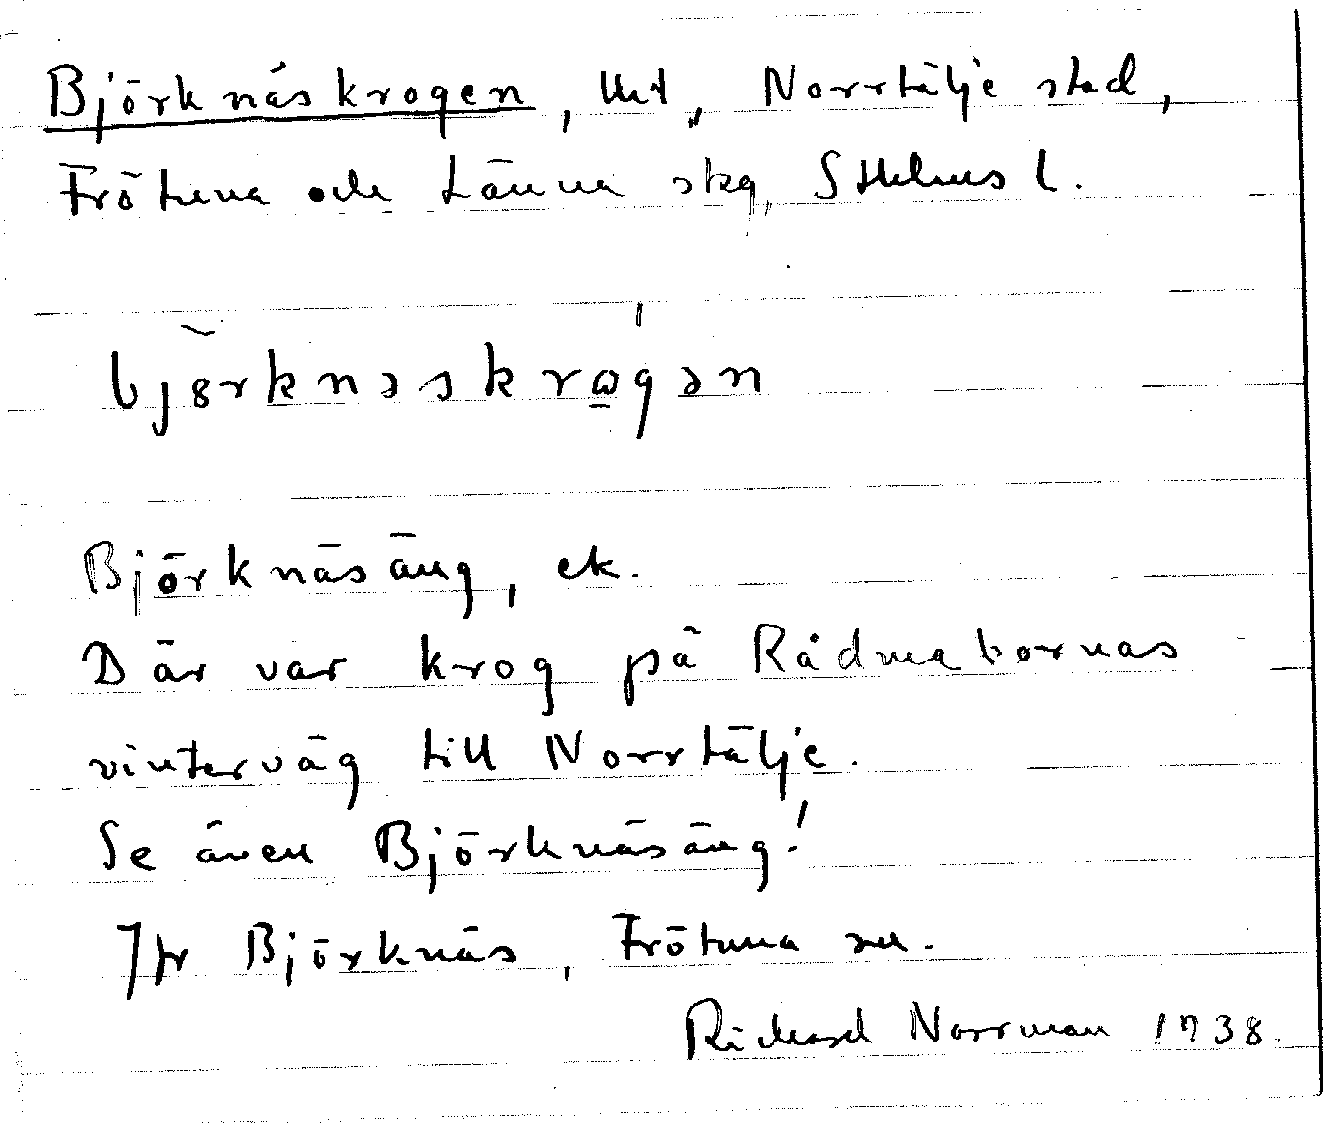 Björknäskrogen, Utt, Norrtälje stad,
Frötuna och Länna skg, Sthlms l.
bjørknəskrọgən
Björknäsäng, ek.
Där var krog på Rådmabornas
vinterväg till Norrtälje.
Se även Björknäsäng!
Jfr Björknäs, Frötuna sn.
Richard Norrman 1938.